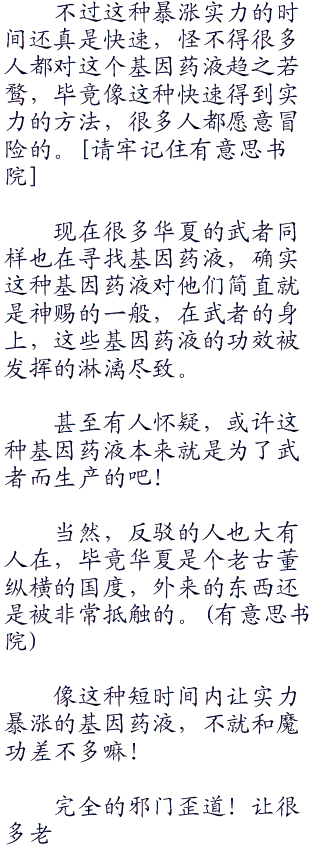 不过这种暴涨实力的时
间还真是快速，怪不得很多
人都对这个基因药液趋之若
鹜，毕竟像这种快速得到实
力的方法，很多人都愿意冒
险的。[请牢记住有意思书
院]
现在很多华夏的武者同
样也在寻找基因药液，确实
这种基因药液对他们简直就
是神赐的一般，在武者的身
上，这些基因药液的功效被
发挥的淋漓尽致。
甚至有人怀疑，或许这
种基因药液本来就是为了武
者而生产的吧！
当然，反驳的人也大有
人在，毕竟华夏是个老古董
纵横的国度，外来的东西还
是被非常抵触的。(有意思书
院)
像这种短时间内让实力
暴涨的基因药液，不就和魔
功差不多嘛！
完全的邪门歪道！让很
多老